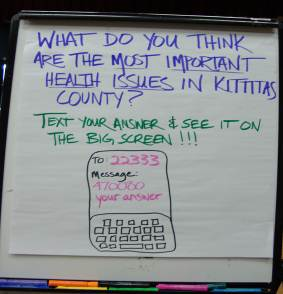 WHAT DO YOU THINK
ARE THE MOST IMPORTANT
HEALTH ISSUES IN KITTITAS
COUNTY?
TEXT YOUR ANSWER & SEE IT ON
THE BIG SCREEN!!!
TO: 22333
Message:
your answer